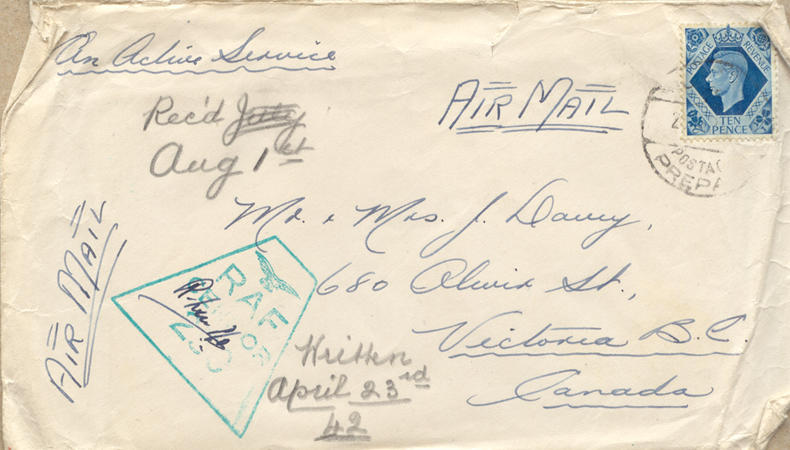 On Active Service
POSTAGE REVENUE
TEN PENCE
Rec'd July
Aug 1st
AIR MAIL
POSTA
PREPA
AIR MAIL
Mr. & Mrs. J. Davey,
680 Oliver St.,
Victoria B.C.
Canada
RAF
CENSOR
Written
April 23rd
42